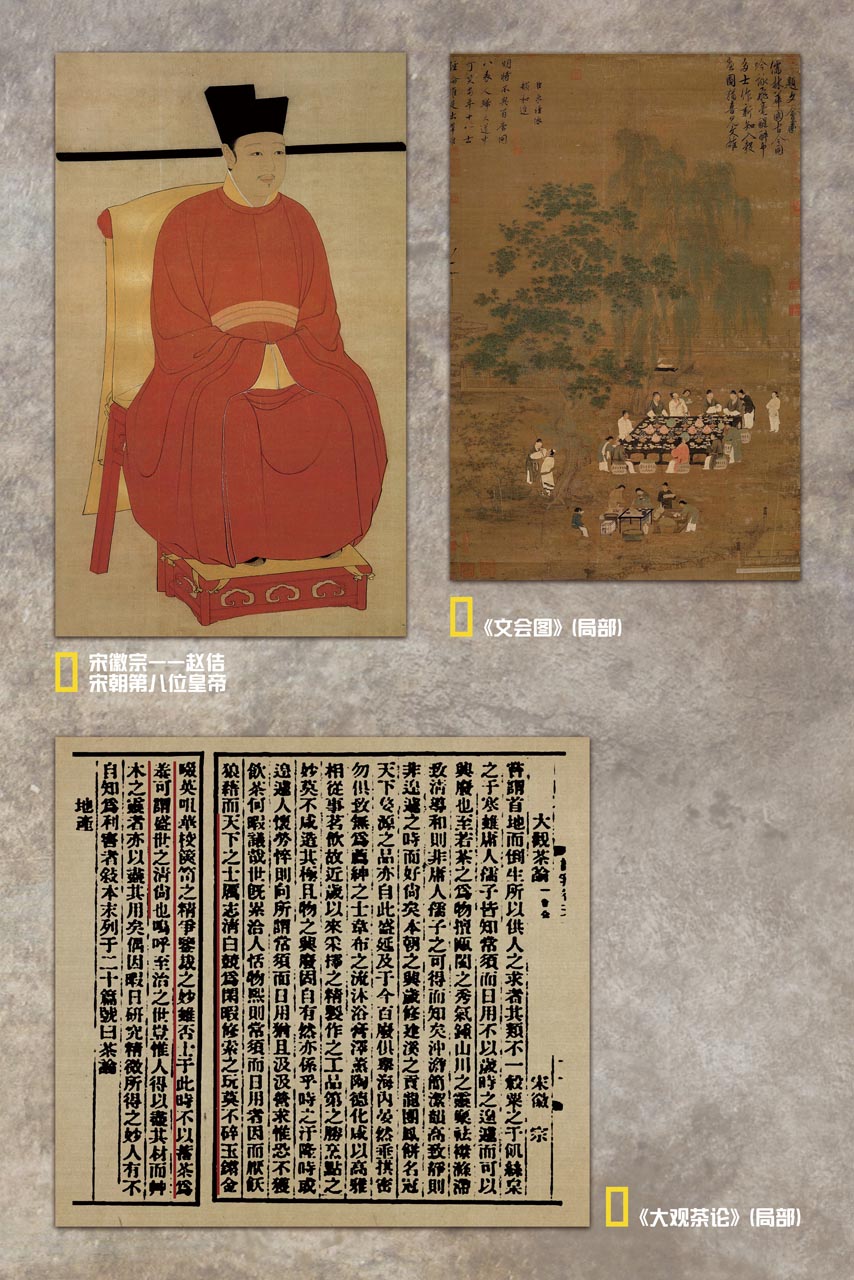 題文會圖
儒林華國古今同
吟詠飛毫醒醉中
多士作新知入彀
畫圖猶喜見文雄
臣京謹依
韻和進
明時不與有唐同
八表人歸大道中
可笑當年十八士
《文会图》(局部)
宋徽宗——赵佶
宋朝第八位皇帝
大觀茶論 宋徽宗
嘗謂首地而倒生所以供人之求者其類不一穀粟之于飢絲枲
之于寒雖庸人孺子皆知常須而日用不以歲時之遑遽而可以
興廢也至若茶之為物擅甌閩之秀氣鍾山川之靈稟祛襟滌滯
致清導和則非庸人孺子之可得而知矣沖澹簡潔韻高致靜則
非遑遽之時而好尚矣本朝之興歲修建溪之貢龍團鳳餅名冠
天下壑源之品亦自此盛延及于今百廢俱舉海內晏然垂拱密
勿俱致無為薦紳之士韋布之流沐浴膏澤薰陶德化咸以高雅
相從事茗飲故近歲以來采擇之精製作之工品第之勝烹點之
妙莫不咸造其極且物之興廢因自有然亦係乎時之汙隆時或
遑遽人懷勞悴則向所謂常須而日用猶且汲汲營求惟恐不獲
飲茶何暇議哉世既累洽人恬物熙則常須而日用者因而厭飫
狼藉而天下之士厲志清白競為閑暇修索之玩莫不碎玉鏘金
啜英咀華校篋笥之精爭鑒裁之妙雖否士于此時不以蓄茶為
羞可謂盛世之清尚也嗚呼至治之世豈惟人得以盡其材而艸
木之靈者亦以盡其用矣偶因暇日研究精微所得之妙人有不
自知為利害者敘本末列于二十篇號曰茶論
地產
《大观茶论》(局部)